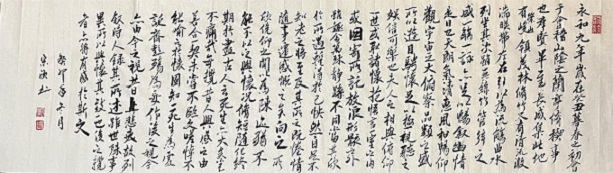 永和九年歲在癸丑暮春之初會
于會稽山陰之蘭亭脩稧事
也群賢畢至少長咸集此地
有崇山峻領茂林脩竹又有清流激
湍暎帶左右引以為流觴曲水
列坐其次雖無絲竹管絃之
盛一觴一詠亦足以暢敘幽情
是日也天朗氣清惠風和暢仰
觀宇宙之大俯察品類之盛
所以遊目騁懷足以極視聽之
娛信可樂也夫人之相與俯仰
一世或取諸懷抱悟言一室之內
或因寄所託放浪形骸之外雖
趣舍萬殊靜躁不同當其欣
於所遇暫得於己快然自足不
知老之將至及其所之既惓情
隨事遷感慨係之矣向之所
欣俛仰之間以為陳迹猶不
能不以之興懷況脩短隨化終
期於盡古人云死生亦大矣豈
不痛哉每攬昔人興感之由
若合一契未嘗不臨文嗟悼不
能喻之於懷固知一死生為虛
誕齊彭殤為妄作後之視今
亦由今之視昔悲夫故列
敘時人錄其所述雖世殊事
異所以興懷其致一也後之攬
者亦將有感於斯文
癸卯年六月